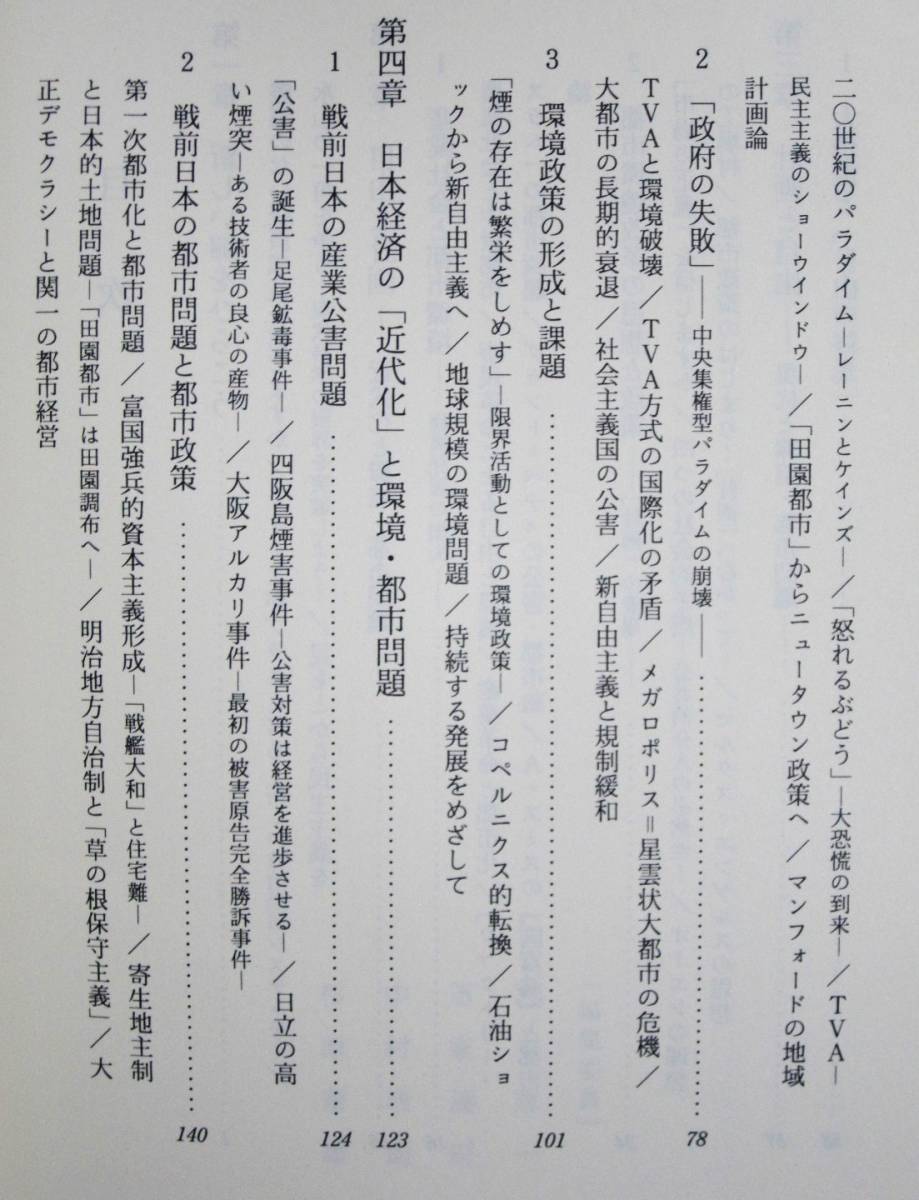 二〇世紀のパラダイム―レーニンとケインズ―／「怒れるぶどう」―大恐慌の到来―／TVA―
民主主義のショーウインドウ―／「田園都市」からニュータウン政策へ／マンフォードの地域
計画論
2 「政府の失敗」――中央集権型パラダイムの崩壊――……………………………78
TVAと環境破壊／TVA方式の国際化の矛盾／メガロポリス＝星雲状大都市の危機／
大都市の長期的衰退／社会主義国の公害／新自由主義と規制緩和
3 環境政策の形成と課題……………………………101
「煙の存在は繁栄をしめす」―限界活動としての環境政策―／コペルニクス的転換／石油ショ
ックから新自由主義へ／地球規模の環境問題／持続する発展をめざして
第四章 日本経済の「近代化」と環境・都市問題……………………………123
1 戦前日本の産業公害問題……………………………124
「公害」の誕生―足尾鉱毒事件―／四阪島煙害事件―公害対策は経営を進歩させる―／日立の高
い煙突―ある技術者の良心の産物―／大阪アルカリ事件―最初の被害原告完全勝訴事件―
2 戦前日本の都市問題と都市政策……………………………140
第一次都市化と都市問題／富国強兵的資本主義形成―「戦艦大和」と住宅難―／寄生地主制
と日本的土地問題―「田園都市」は田園調布へ―／明治地方自治制と「草の根保守主義」／大
正デモクラシーと関一の都市経営